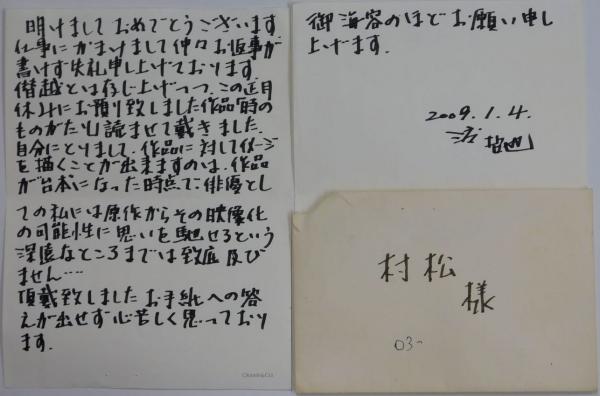 明けましておめでとうございます
仕事にかまけまして仲々お返事が
書けず失礼申し上げております
僭越とは存じ上げつつ、この正月
休みにお預り致しました作品「時の
ものがたり」読ませて戴きました.
自分にとりまして、作品に対してイメージ
を描くことが出来ますのは、作品
が台本になった時点で、俳優とし
ての私には原作からその映像化
の可能性に思いを馳せるという
深遠なところまでは致底及び
ません‥‥
頂戴致しましたお手紙への答
えが出せず心苦しく思っており
ます.
御海容のほどお願い申し
上げます.
2009.1.4.
村松
様
03-